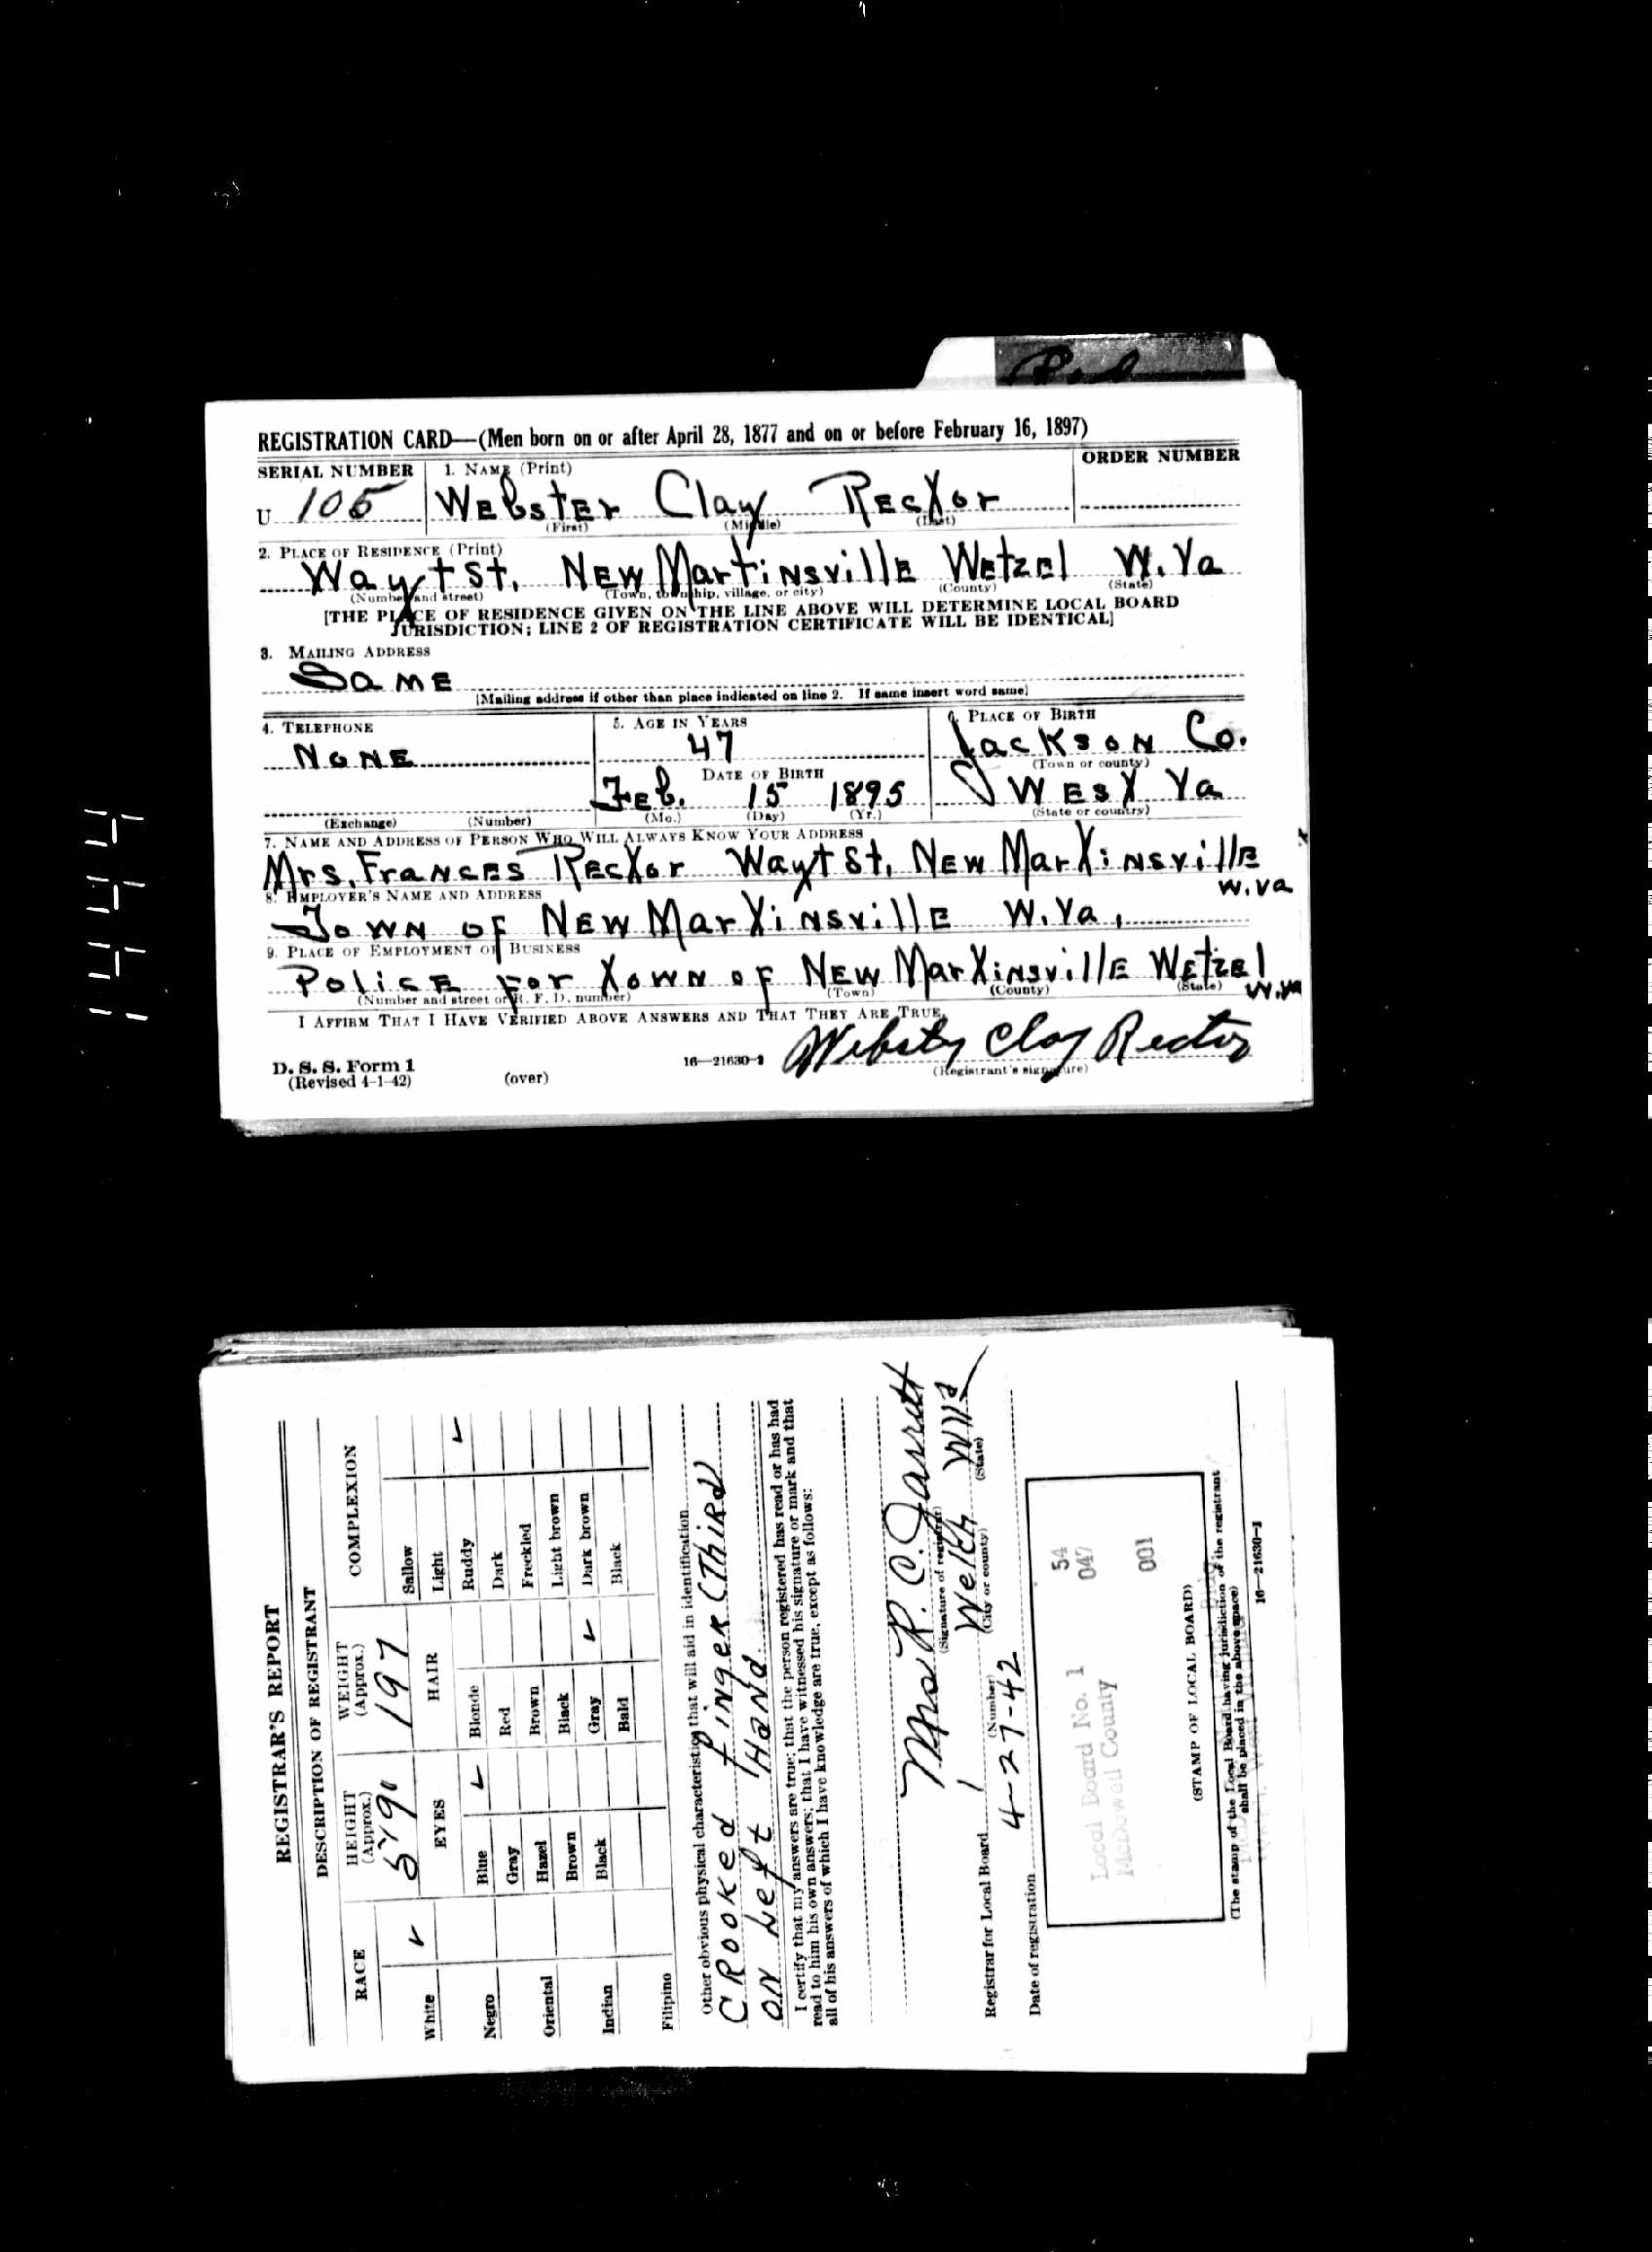 REGISTRATION CARD—(Men born on or after April 28, 1877 and on or before February 16, 1897)
SERIAL NUMBER 1. NAME (Print) ORDER NUMBER
U 105 Webster Clay Rector
(First) (Middle) (Last)
2. PLACE OF RESIDENCE (Print)
Wayt St. New Martinsville Wetzel W. Va
(Number and street) (Town, township, village, or city) (County) (State)
[THE PLACE OF RESIDENCE GIVEN ON THE LINE ABOVE WILL DETERMINE LOCAL BOARD
JURISDICTION; LINE 2 OF REGISTRATION CERTIFICATE WILL BE IDENTICAL]
3. MAILING ADDRESS
Same
[Mailing address if other than place indicated on line 2. If same insert word same]
4. TELEPHONE 5. AGE IN YEARS 6. PLACE OF BIRTH
None 47 Jackson Co.
DATE OF BIRTH (Town or county)
Feb. 15 1895 West Va
(Exchange) (Number) (Mo.) (Day) (Yr.) (State or country)
7. NAME AND ADDRESS OF PERSON WHO WILL ALWAYS KNOW YOUR ADDRESS
Mrs. Frances Rector Wayt St. New Martinsville
W.Va
8. EMPLOYER'S NAME AND ADDRESS
Town of New Martinsville W. Va.
9. PLACE OF EMPLOYMENT OR BUSINESS
Police for Town of New Martinsville Wetzel
W.Va
(Number and street or R. F. D. number) (Town) (County) (State)
I AFFIRM THAT I HAVE VERIFIED ABOVE ANSWERS AND THAT THEY ARE TRUE.
Webster Clay Rector
D. S. S. Form 1 16—21630-2 (Registrant's signature)
(Revised 4-1-42) (over)
REGISTRAR'S REPORT
DESCRIPTION OF REGISTRANT
RACE HEIGHT (Approx.) WEIGHT (Approx.) COMPLEXION
5'9" 197
White ✓ EYES HAIR Sallow
Light
Negro Blue ✓ Blonde Ruddy ✓
Gray Red Dark
Oriental Hazel Brown Freckled
Brown Black Light brown
Indian Black Gray ✓ Dark brown
Bald Black
Filipino
Other obvious physical characteristics that will aid in identification
Crooked Finger (Third)
on Left Hand
I certify that my answers are true; that the person registered has read or has had
read to him his own answers; that I have witnessed his signature or mark and that
all of his answers of which I have knowledge are true, except as follows:
Mrs R. C. Jarrett
(Signature of registrar)
Registrar for Local Board 1 Welch W Va
(Number) (City or county) (State)
Date of registration 4-27-42
Local Board No. 1 54
McDowell County 047
001
(STAMP OF LOCAL BOARD)
(The stamp of the Local Board having jurisdiction of the registrant
shall be placed in the above space)
16—21630-2